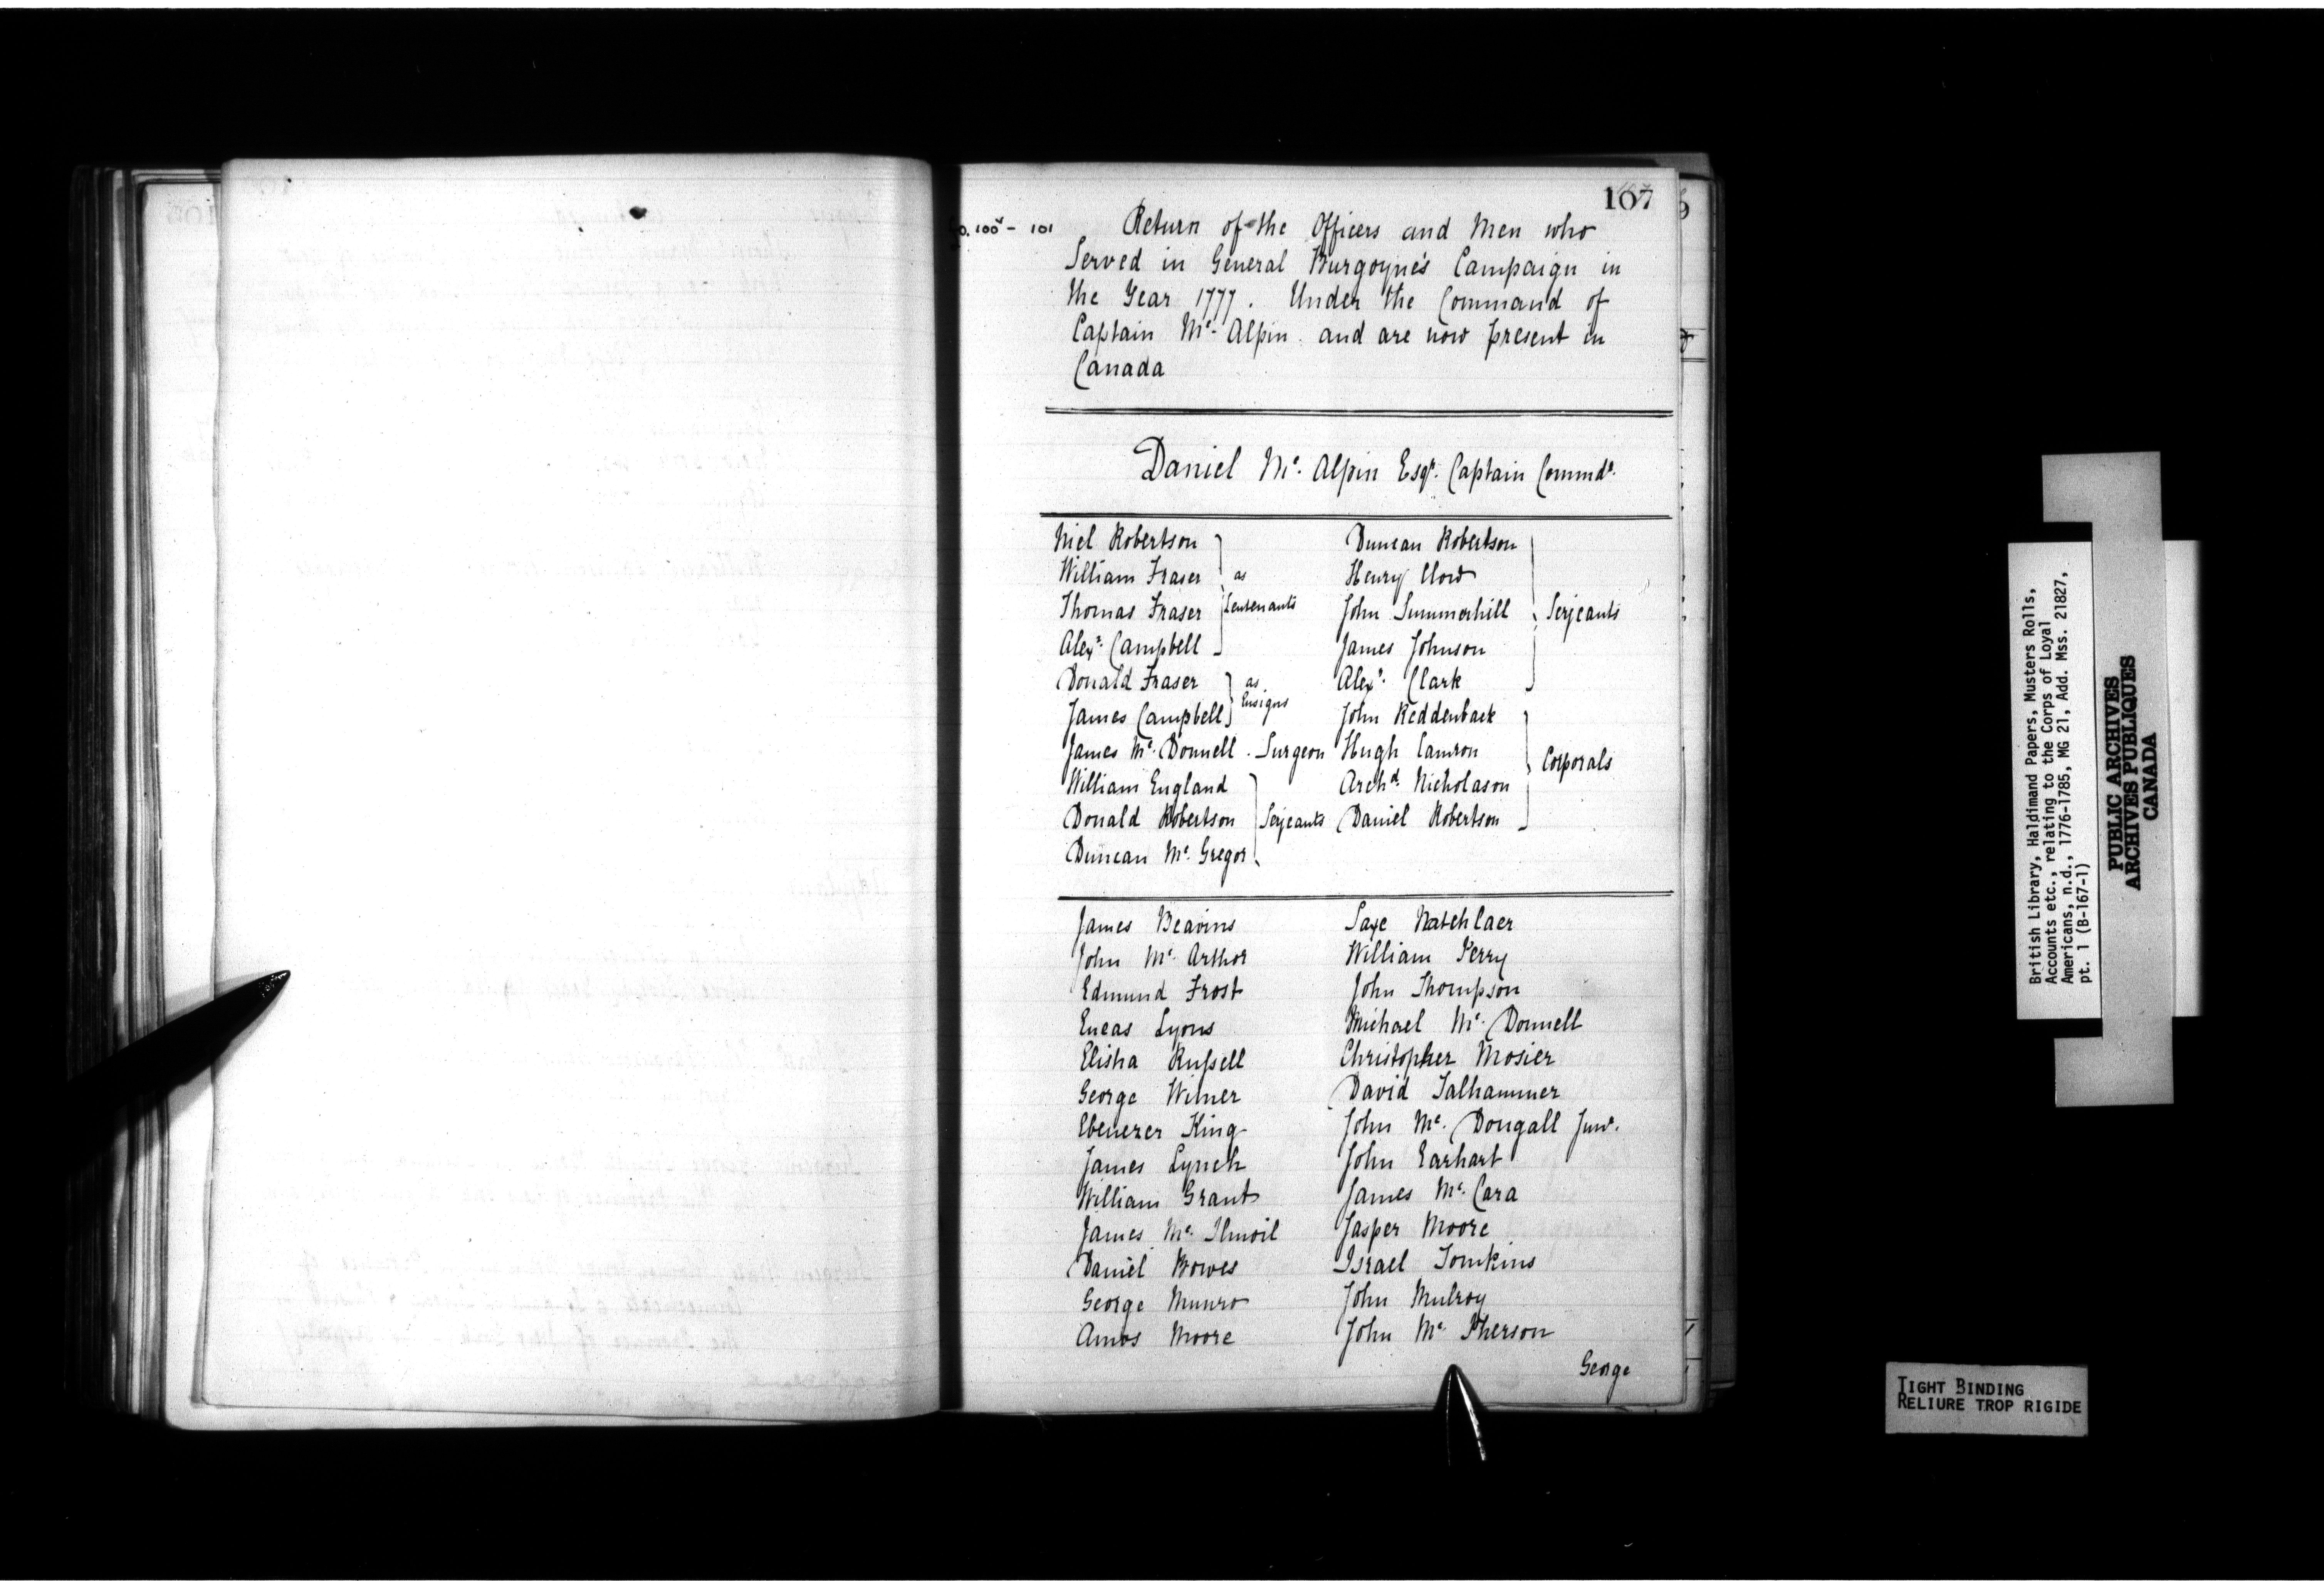 107
100 - 101
Return of the Officers and Men who
Served in General Burgoyne's Campaign in
the Year 1777. Under the Command of
Captain Mc. Alpin and are now present in
Canada
Daniel Mc. Alpin Esqr. Captain Commdt.
Niel Robertson
William Fraser
Thomas Fraser
Alexr. Campbell
as
Leutenants
Donald Fraser
James Campbell
as
Ensigns
James Mc. Donnell. Surgeon
William England
Donald Robertson
Duncan Mc. Gregor
Serjeants
Duncan Robertson
Henry Clow
John Summerhill
James Johnson
Alexr. Clark
Serjeants
John Reddenback
Hugh Camron
Archd. Nicholason
Daniel Robertson
Corporals
James Beavins
John Mc. Arthor
Edmund Frost
Eneas Lyons
Elisha Russell
George Wilner
Ebenezer King
James Lynch
William Grant
James Mc. Ilmoil
Daniel Bowes
George Munro
Amos Moore
William Perry
John Thompson
Michael Mc. Donnell
Christopher Mosier
David Jalhammer
John Mc. Dougall Junr.
John Earhart
James Mc. Cara
Jasper Moore
Israel Tomkins
John Mulroy
John Mc. Pherson
George
British Library, Haldimand Papers, Musters Rolls,
Accounts etc., relating to the Corps of Loyal
Americans, n.d., 1776-1785, MG 21, Add. Mss. 21827,
pt. 1 (B-167-1)
PUBLIC ARCHIVES
ARCHIVES PUBLIQUES
CANADA
TIGHT BINDING
RELIURE TROP RIGIDE